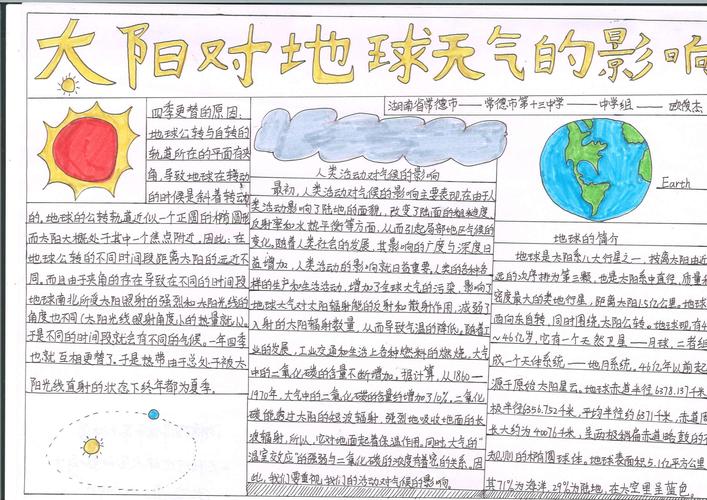 太阳对地球天气的影响
湖南省常德市——常德市第十三中学——中学组——欧俊杰
四季更替的原因:
地球公转与自转的
轨道所在的平面有夹
角,导致地球在转动
的时候是斜着转动
的。地球的公转轨道近似一个正圆的椭圆形
而太阳大概处于其中一个焦点附近。因此:在
地球公转的不同时间段距离太阳的远近不
同。而且由于夹角的存在导致在不同的时间段
地球南北所受太阳照射的强烈和太阳光线的
角度也不同(太阳光线照射角度小的热量就小)。
于是不同的时间段就会有不同的气候。一年四季
也就互相更替了。于是热带由于总处于被太
阳光线直射的状态下终年都为夏季。
人类活动对气候的影响
最初,人类活动对气候的影响主要表现在由于人
类活动影响了陆地的面貌,改变了陆面的粗糙度
反射率和水热平衡等方面,从而引起局部地区气候的
变化。随着人类社会的发展,其影响的广度与深度日
益增加,人类活动的影响就日益重要。人类的各种各
样的生产和生活活动,增加了全球大气的污染,影响了
地球大气对太阳辐射能的反射和散射作用,减弱了
入射的太阳辐射数量,从而导致气温的降低。随着工
业的发展,工业交通和生活上各种燃料的燃烧,大气
中的二氧化碳的含量不断增加。据估算,从1860—
1970年,大气中的二氧化碳的含量约增加了10%。二氧化
碳能透过太阳的短波辐射,强烈地吸收地面的长
波辐射,所以,它对地面起着保温作用。同时,大气的"
温室效应"的强弱与二氧化碳的浓度有密的关系。因
此,我们要重视我们的活动对气候的影响。
Earth
地球的简介
地球是太阳系八大行星之一,按离太阳由近
远的次序排为第三颗,也是太阳系中直径,质量和
密度最大的类地行星,距离太阳1.5亿公里。地球
面向东自转,同时围绕太阳公转。地球现有4
~46亿岁,它有一个天然卫星——月球,二者组
成一个天体系统——地月系统。46亿年以前起
源于原始太阳星云。地球赤道半径6378.137千米
极半径6356.752千米,平均半径约6371千米,赤道周
长大约为40076千米,呈两极稍扁赤道略鼓的不
规则的椭圆球体。地球表面积5.1亿平方公里
其71%为海洋,29%为陆地,在太空里呈蓝色